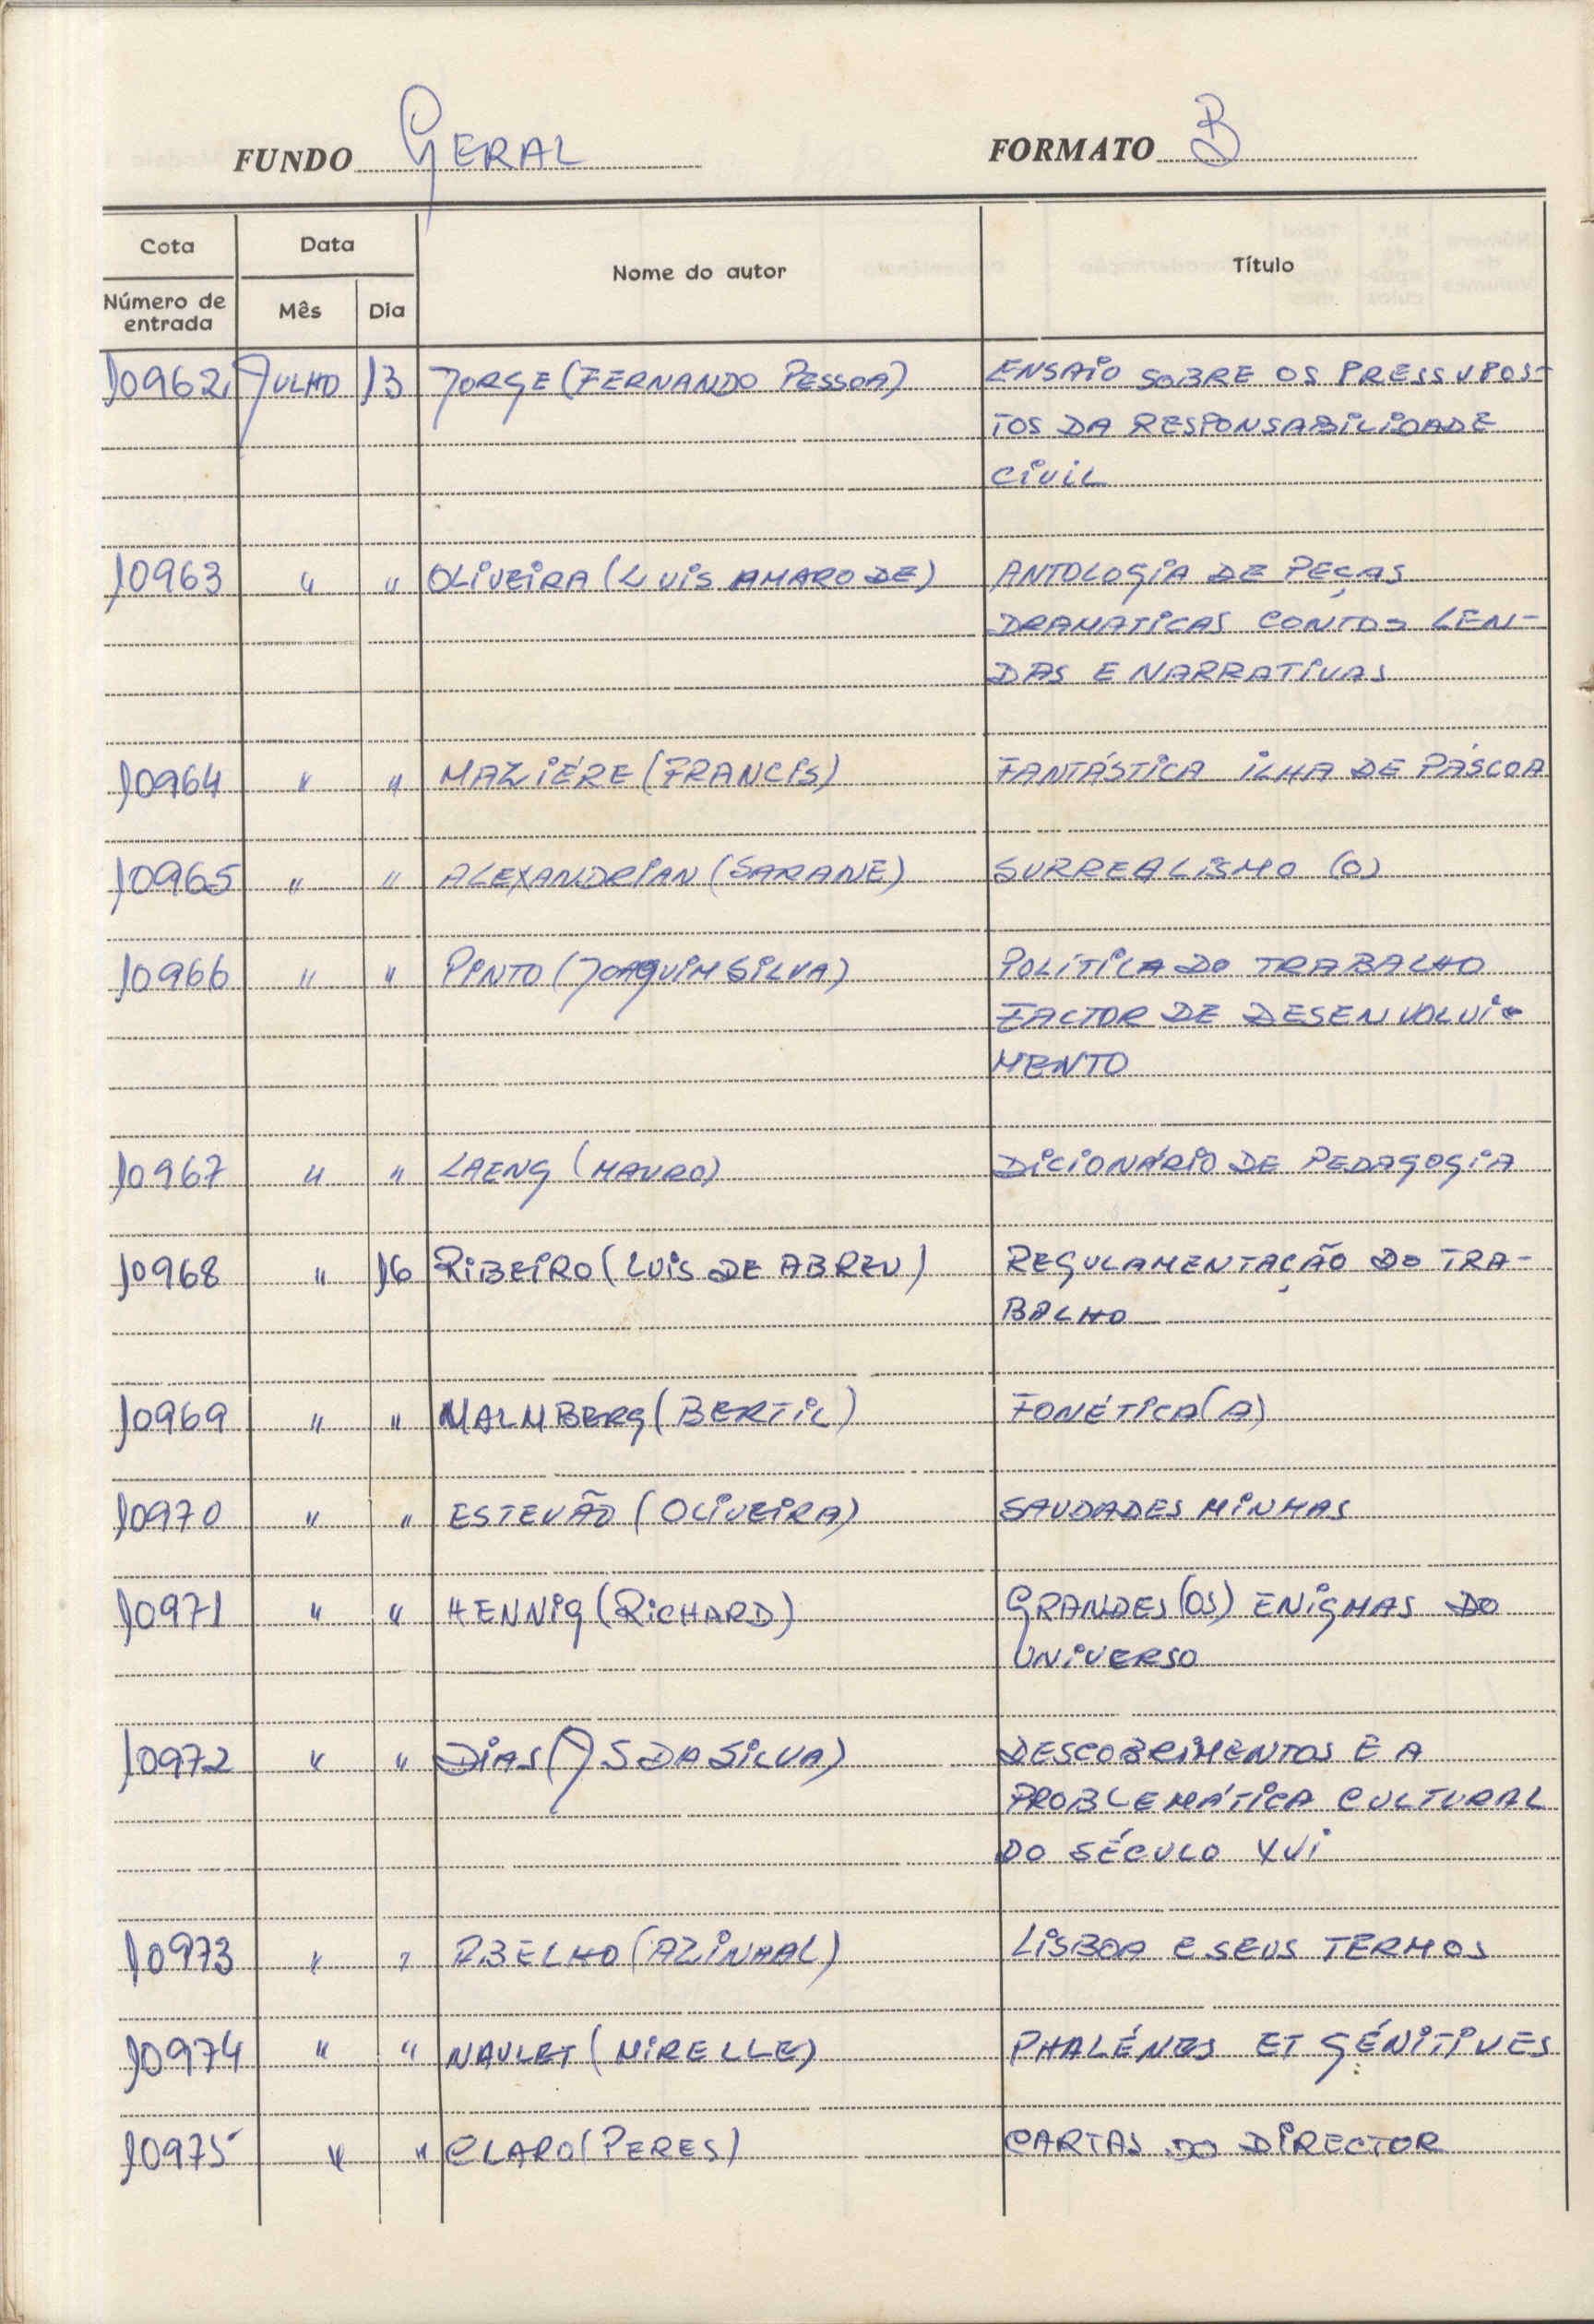 FUNDO GERAL FORMATO B
Cota Data Nome do autor Título
Número de entrada Mês Dia
10962 JULHO 13 JORGE (FERNANDO PESSOA) ENSAIO SOBRE OS PRESSUPOS-
TOS DA RESPONSABILIDADE
CIVIL
10963 " " OLIVEIRA (LUIS AMARO DE) ANTOLOGIA DE PEÇAS
DRAMATICAS CONTOS LEN-
DAS E NARRATIVAS
10964 " " MAZIÉRE (FRANCIS) FANTÁSTICA ILHA DE PÁSCOA
10965 " " ALEXANDRIAN (SARANE) SURREALISMO (O)
10966 " " PINTO (JOAQUIM SILVA) POLITICA DO TRABALHO
FACTOR DE DESENVOLVI-
MENTO
10967 " " LAENG (MAURO) DICIONÁRIO DE PEDAGOGIA
10968 " 16 RIBEIRO (LUIS DE ABREU) REGULAMENTAÇÃO DO TRA-
BALHO
10969 " " MALMBERG (BERTIL) FONÉTICA (A)
10970 " " ESTEVÃO (OLIVEIRA) SAUDADES MINHAS
10971 " " HENNIG (RICHARD) GRANDES (OS) ENIGMAS DO
UNIVERSO
10972 " " DIAS (J S DA SILVA) DESCOBRIMENTOS E A
PROBLEMÁTICA CULTURAL
DO SÉCULO XVI
10973 " " ABELHO (AZINHAL) LISBOA E SEUS TERMOS
10974 " " NAULET (MIRELLE) PHALÉNES ET GÉNITIVES
10975 " " CLARO (PERES) CARTAS DO DIRECTOR